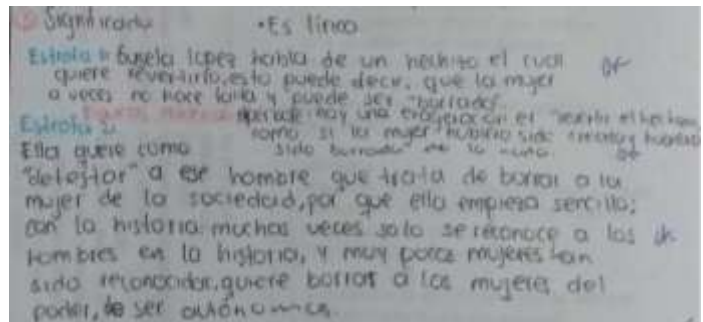 Significado •Es lírico
Estrofa 1: Gugela lopez habla de un hechizo el cual
quiere revertirlo, esto puede decir, que la mujer
a veces no hace falta y puede ser "borrada".
hipérbole: hay una exageración el "revertir el hechizo
Estrofa 2: como si la mujer hubiera sido creada y hubiera
Ella quiere como sido borrada de la
"detestar" a ese hombre que trata de borrar a la
mujer de la sociedad, por que ella empieza sencillo;
con la historia muchas veces solo se reconoce a los
hombres en la historia, y muy pocas mujeres han
sido reconocidas, quiere borrar a las mujeres del
poder, de ser autónomas.